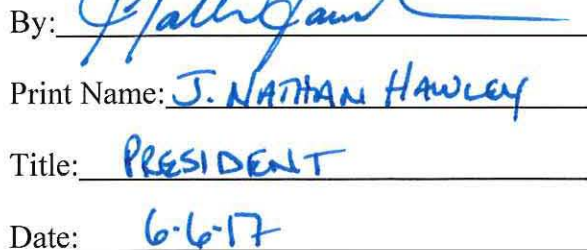 By:
Print Name: J. NATHAN HAWLEY
Title: PRESIDENT
Date: 6-6-17